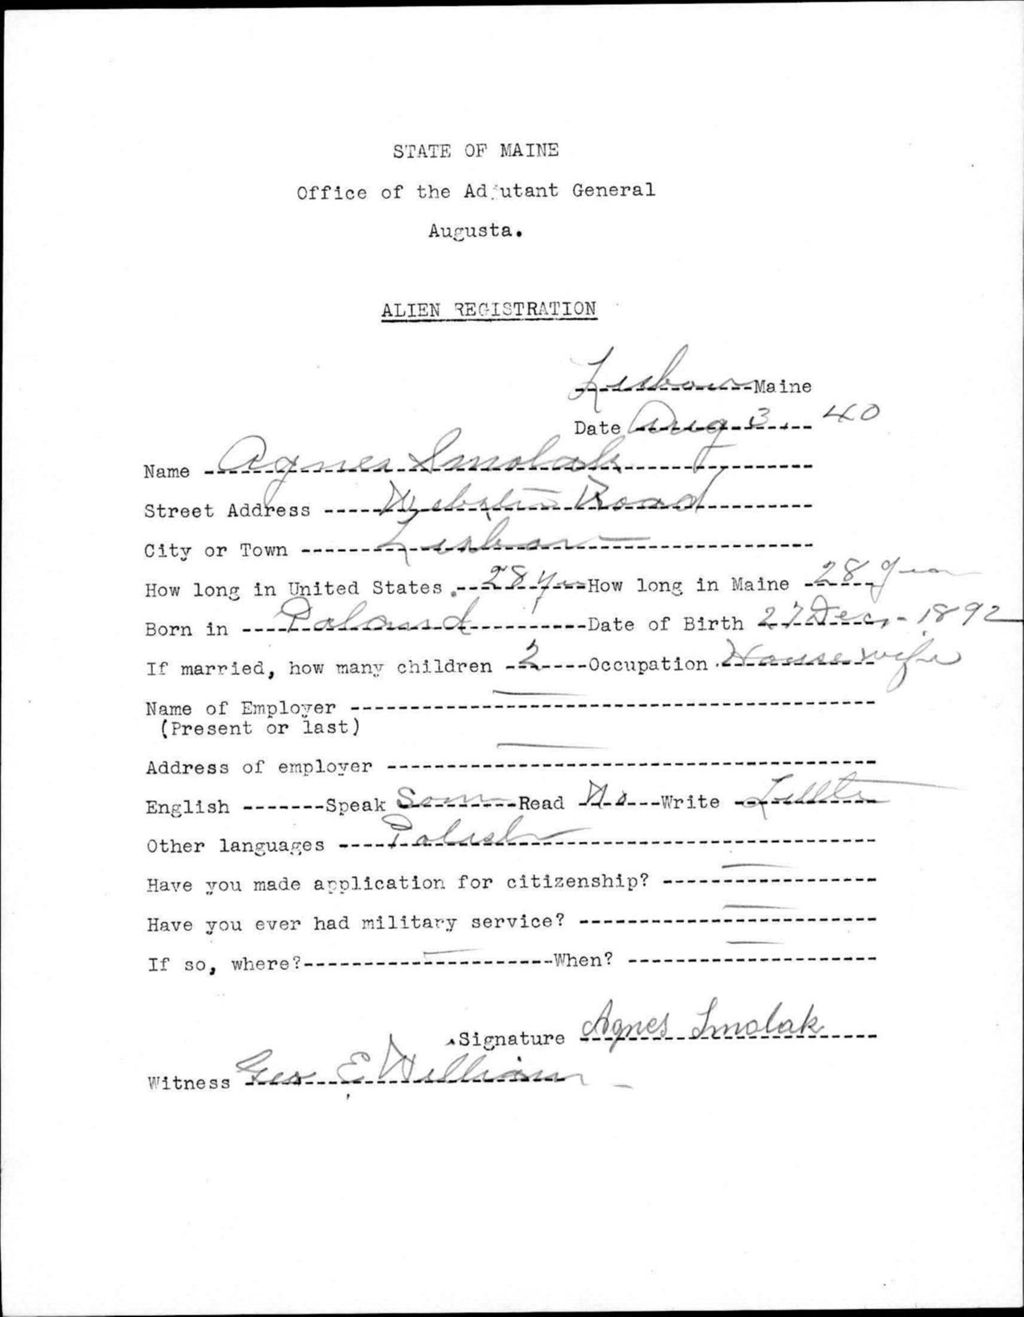 STATE OF MAINE
Office of the Adjutant General
Augusta.
ALIEN REGISTRATION
Lisbon Maine
Date Aug 3. 40
Name Agnes Smolak
Street Address Webster Road
City or Town Lisbon
How long in United States 28 yrs How long in Maine 28 Years
Born in Poland Date of Birth 27 Dec. - 1892
If married, how many children 2 Occupation Housewife
Name of Employer —
(Present or last)
Address of employer —
English Speak Some Read No Write Little
Other languages Polish
Have you made application for citizenship? —
Have you ever had military service? —
If so, where? — When? —
Signature Agnes Smolak
Witness Geo E William